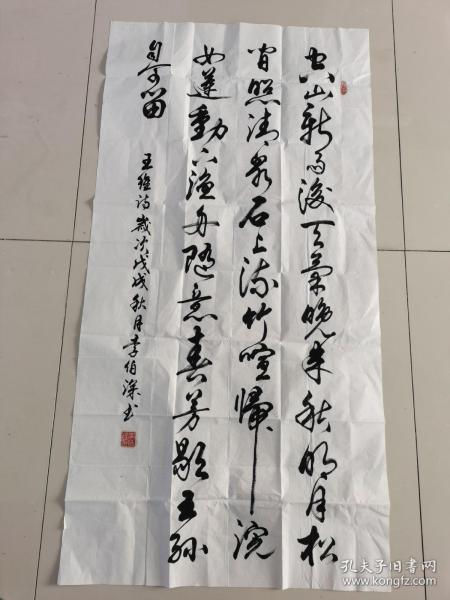 空山新雨後天氣晚來秋明月松
間照清泉石上流竹喧歸浣
女蓮動下漁舟隨意春芳歇王孫
自可留
王維詩歲次戊戌秋月李伯深書
孔夫子旧书网
www.kongfz.com